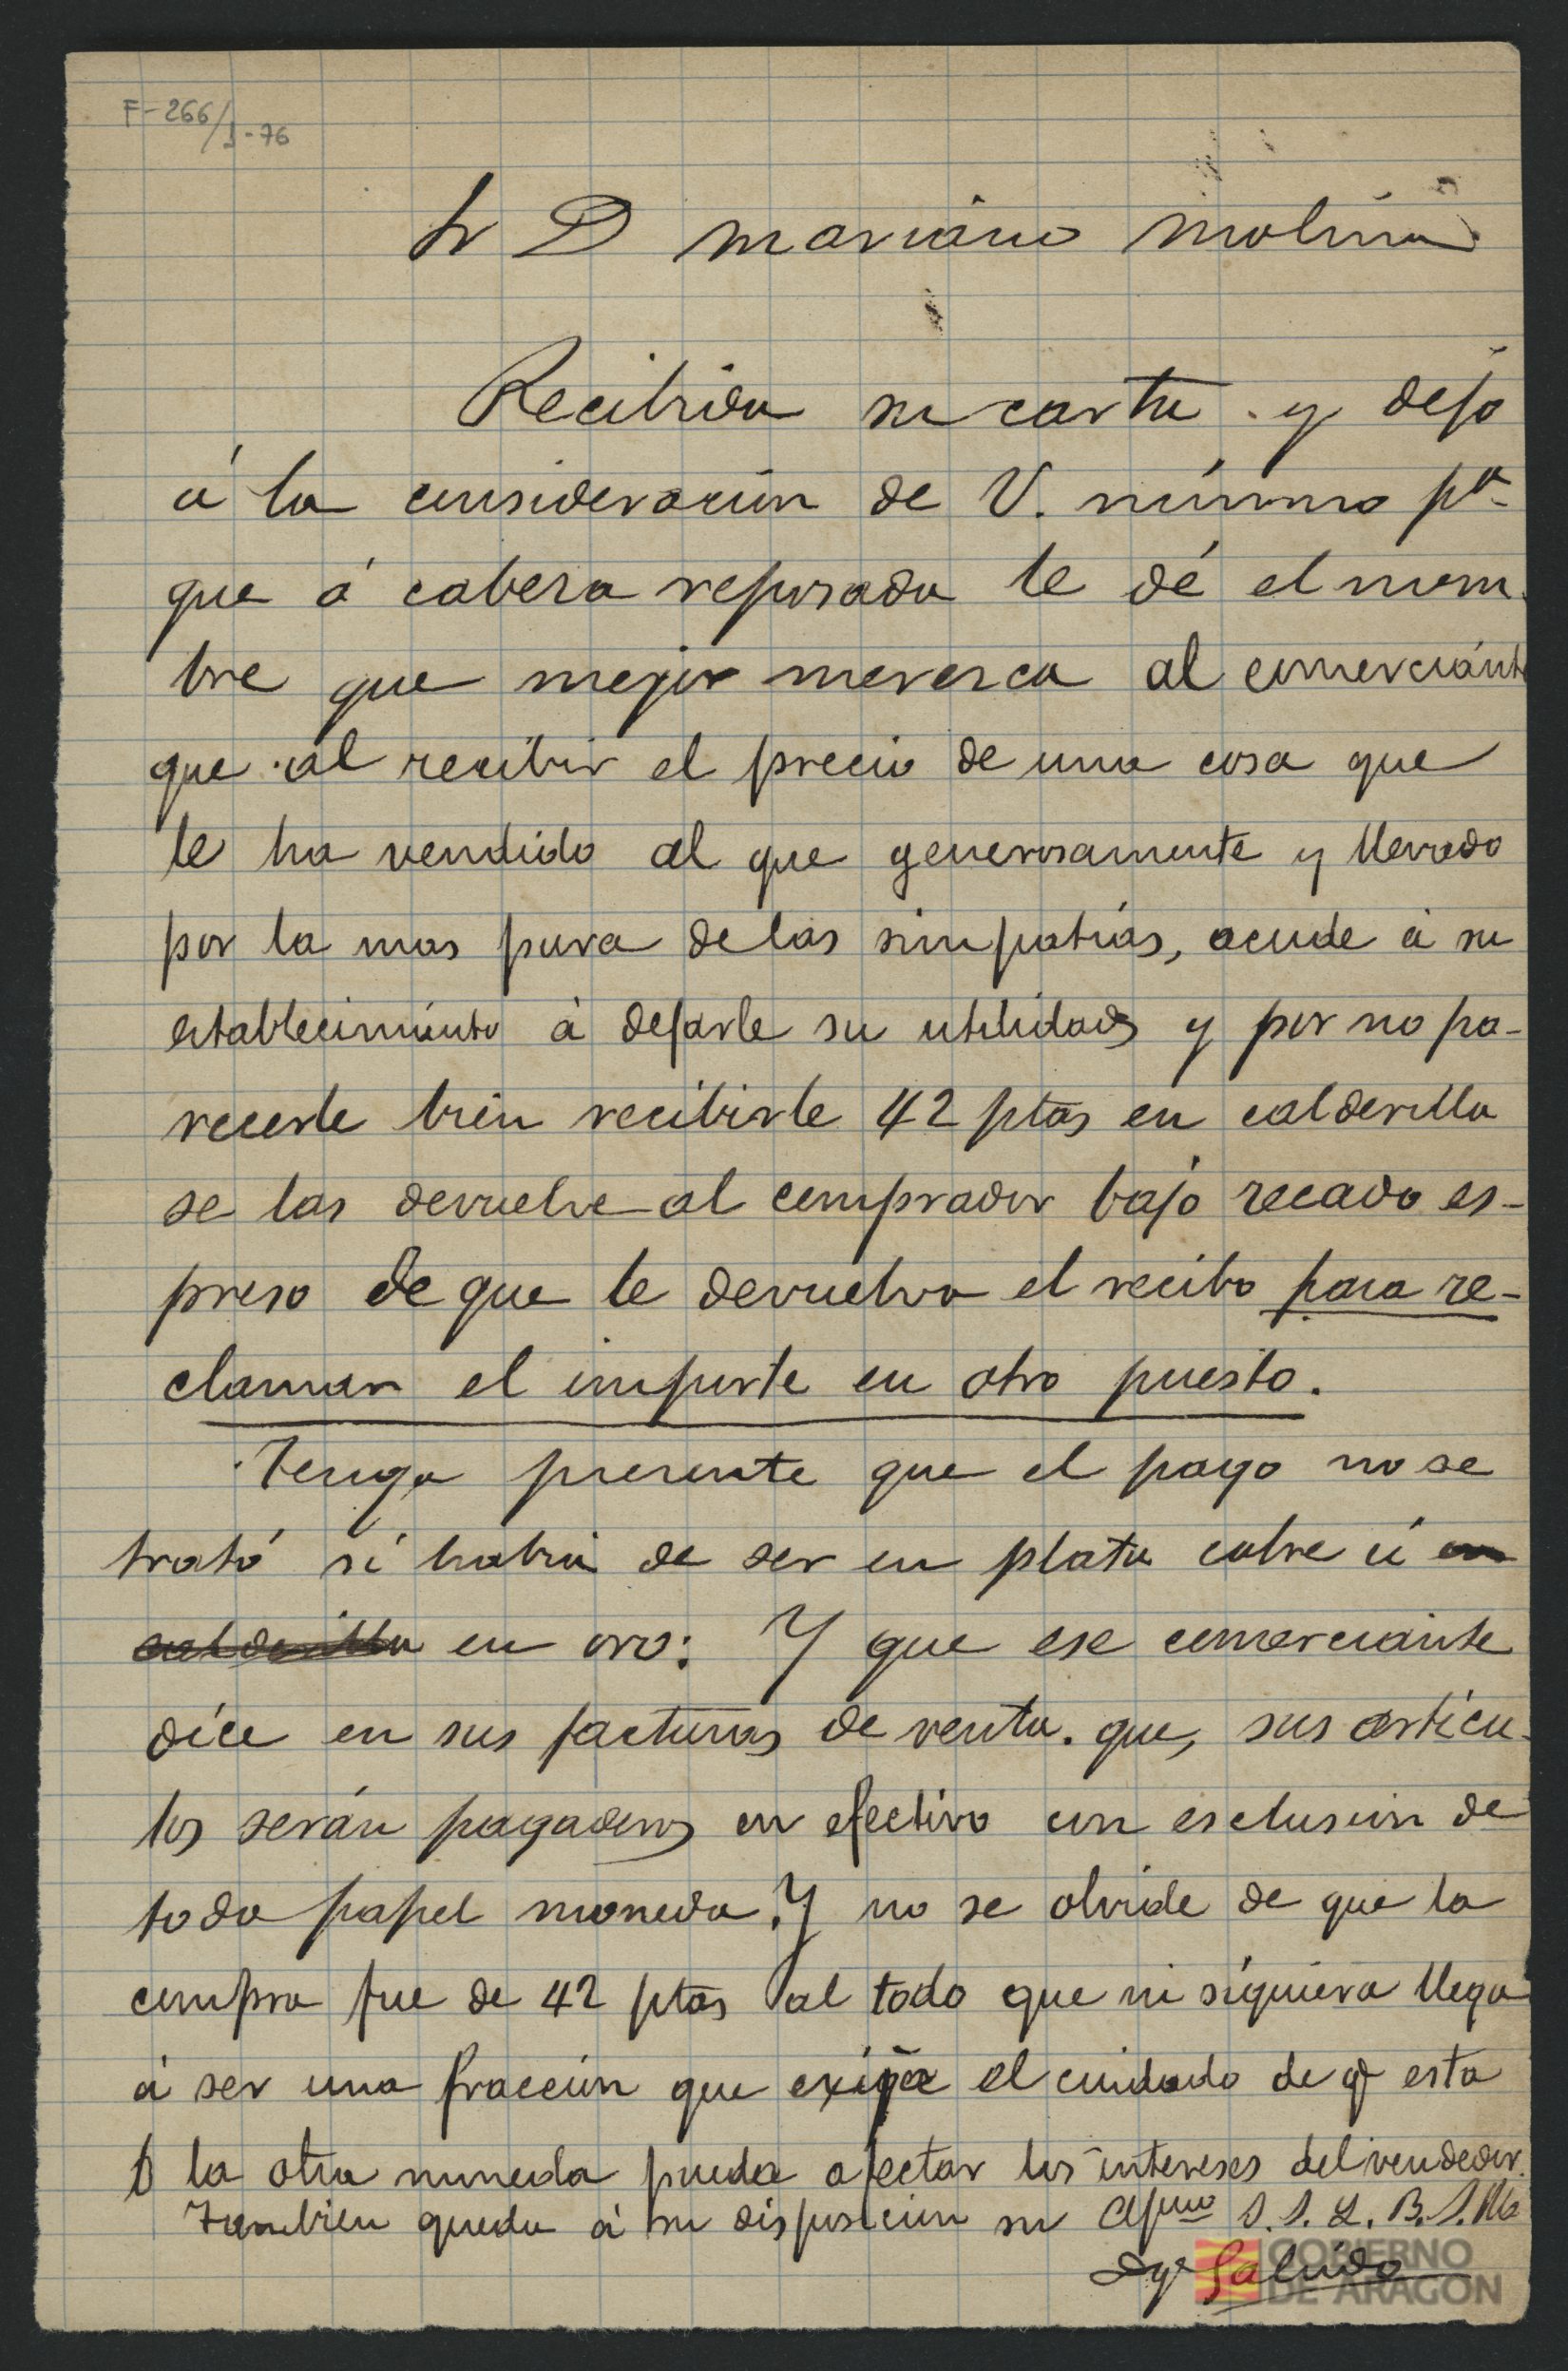 F-266/1-76
Sr D Mariano Molina
Recibida su carta y dejo
á la consideración de V. mismo pª
que á cabeza reposada le dé el nom-
bre que mejor merezca al comerciante
que al recibir el precio de una cosa que
le ha vendido al que generosamente y llevado
por la mas pura de las simpatías, acude á su
establecimiento á dejarle su utilidad y por no pa-
recerle bien recibirle 42 ptas en calderilla
se las devuelve al comprador bajo recado es-
preso de que le devuelva el recibo para re-
clamar el importe en otro puesto.
Tenga presente que el pago no se
trató si habia de ser en plata cobre ú en
calderilla en oro: Y que ese comerciante
dice en sus facturas de venta. que, sus artícu-
los serán pagaderos en efectivo con esclusion de
todo papel moneda. Y no se olvide de que la
compra fue de 42 ptas al todo que ni siquiera llega
á ser una fracción que exija el cuidado de q esta
ó la otra moneda pueda afectar los intereses del vendedor.
Tambien queda á su disposicion su afmo S. S. Q. B. S. M.
Galindo
GOBIERNO
DE ARAGON